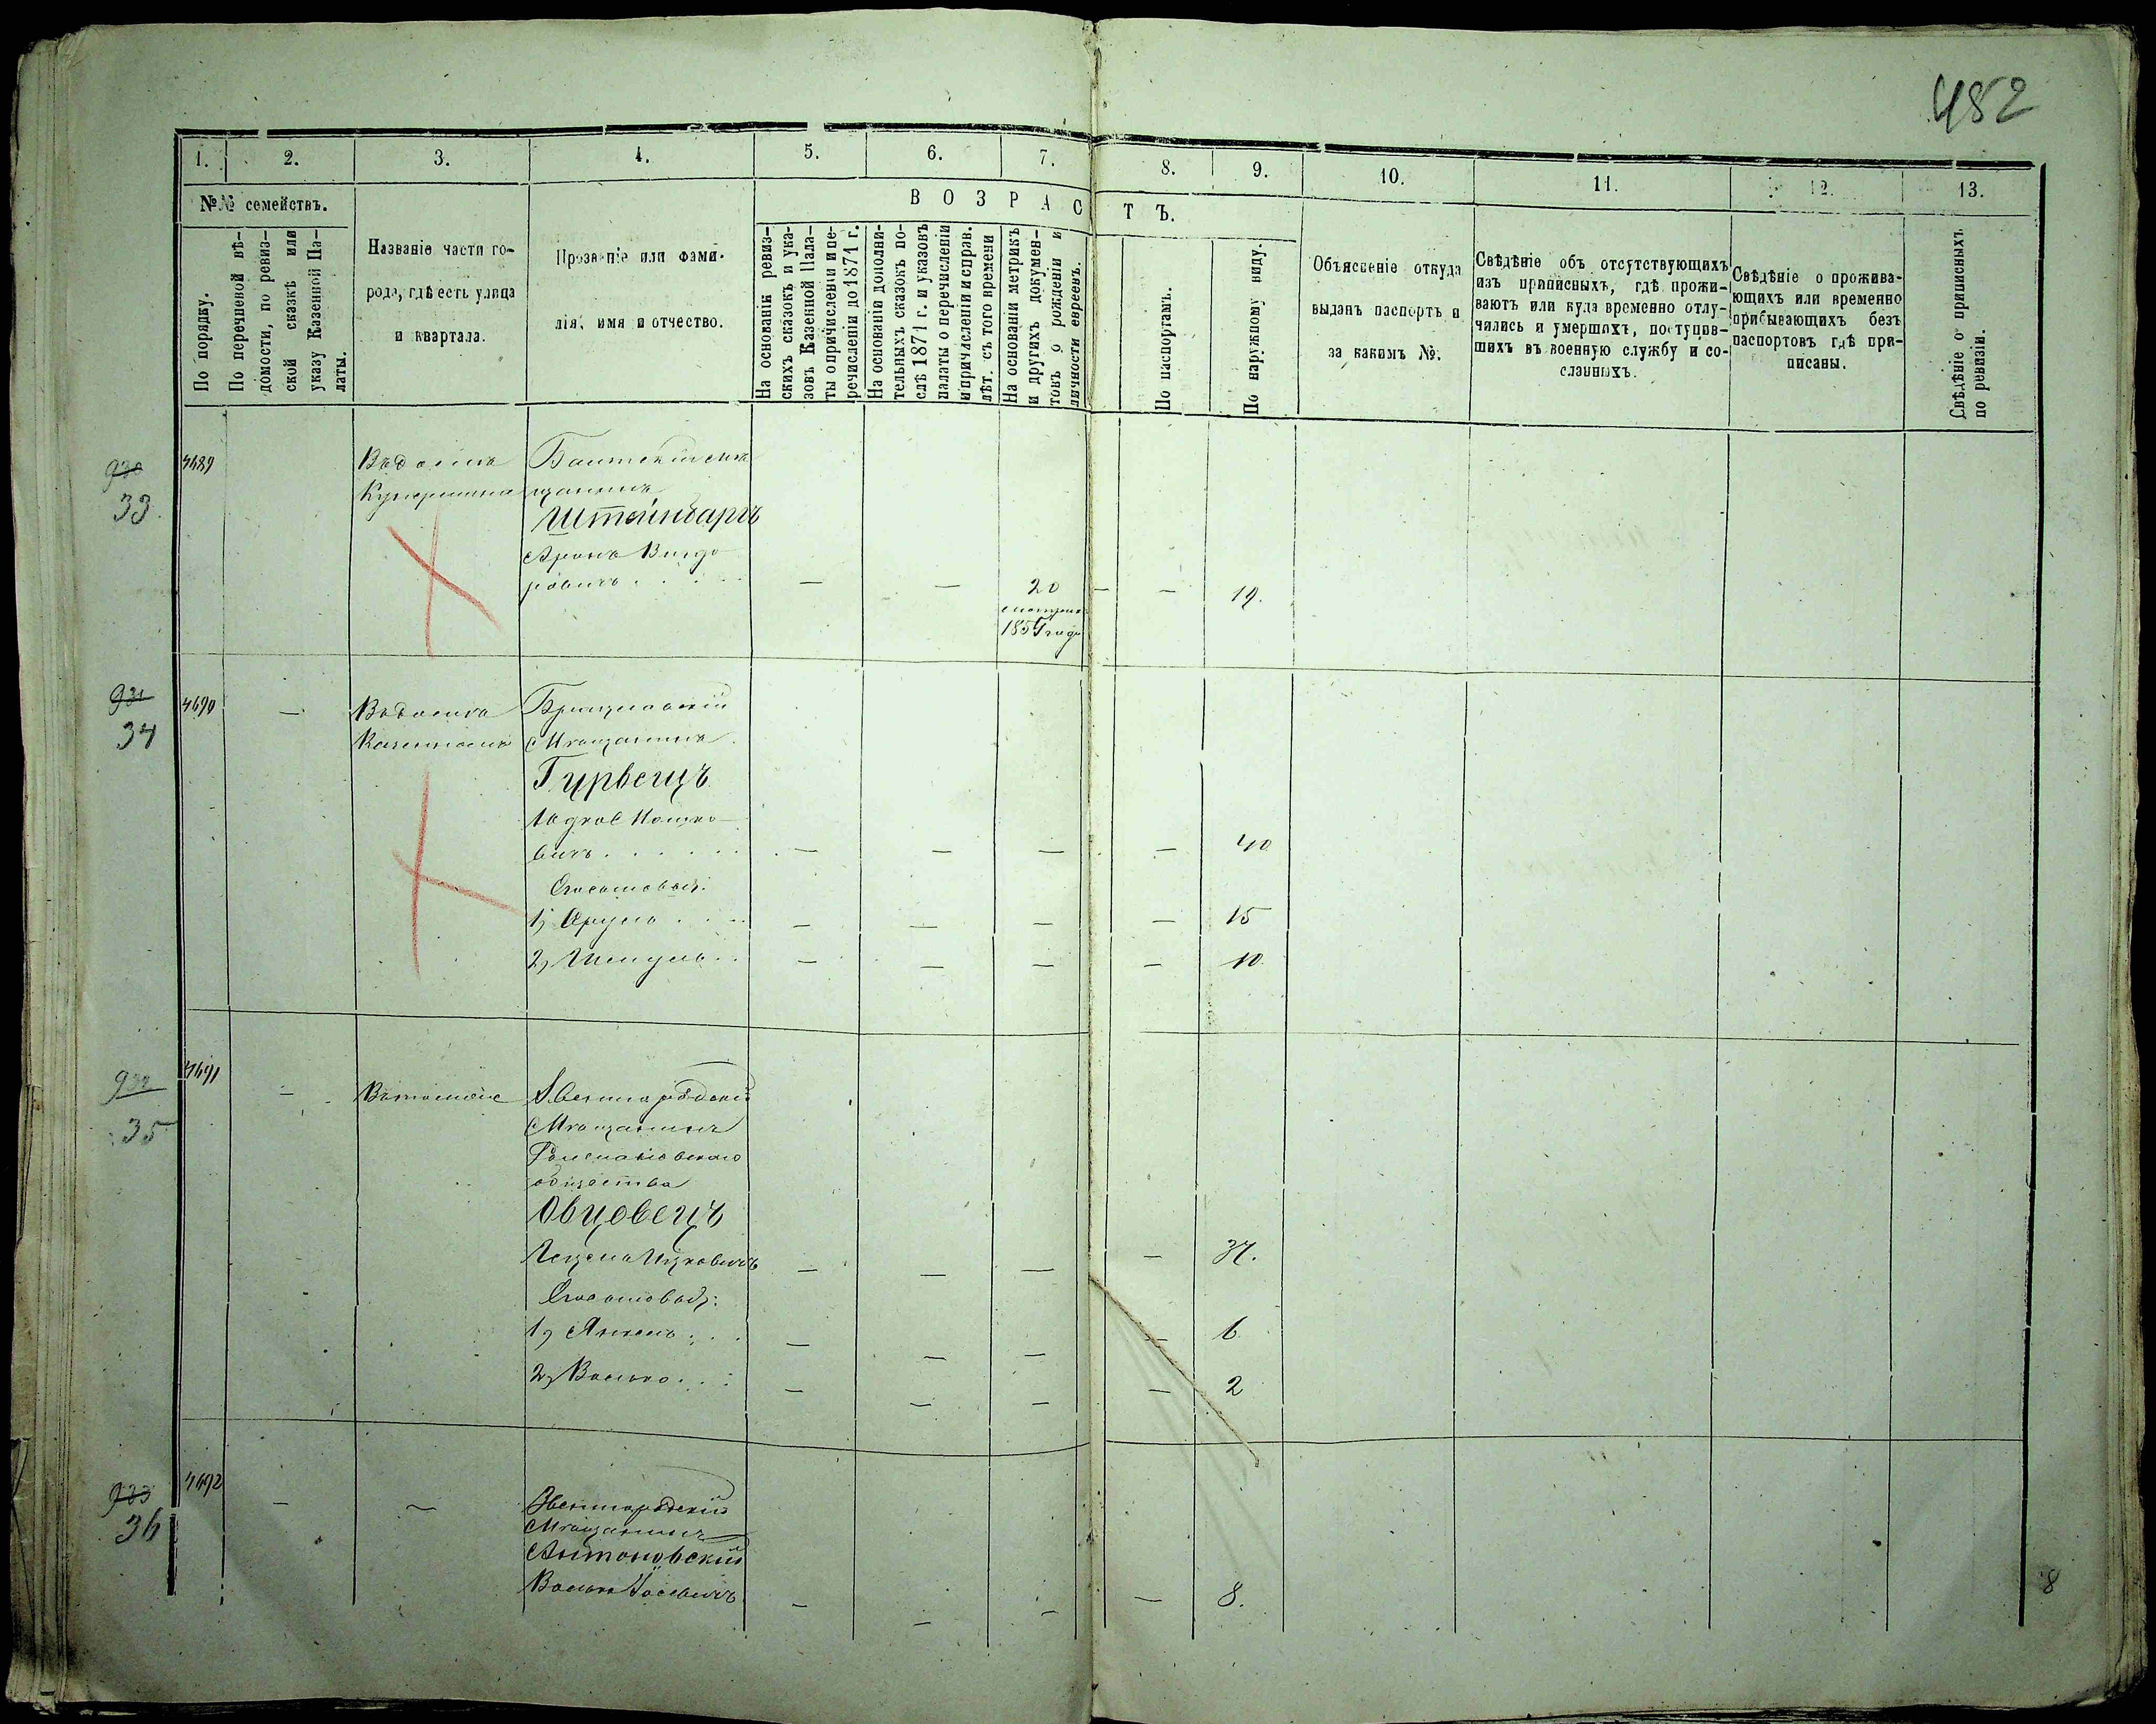 482
1.
2.
3.
4.
5.
6.
7.
8.
9.
10.
11.
12.
13.
№№ семействъ.
По порядку.
По перечневой вѣ-
домости, по ревиз-
ской сказкѣ или
указу Казенной Па-
латы.
Названіе части го-
рода, гдѣ есть улица
и квартала.
Прозваніе или фами-
лія, имя и отчество.
ВОЗРАСТЪ.
На основаніи ревиз-
скихъ сказокъ и ука-
зовъ Казенной Пала-
ты о причисленіи и пе-
речисленіи до 1871 г.
На основаніи дополни-
тельныхъ сказокъ по-
слѣ 1871 г. и указовъ
палаты о перечисленіи
и причисленіи и справ.
лѣт. съ того времени
На основаніи метрикъ
и другихъ докумен-
товъ о рожденіи и
личности евреевъ.
По паспортамъ.
По наружному виду.
Объясненіе откуда
выданъ паспортъ и
за какимъ №.
Свѣдѣніе объ отсутствующихъ
изъ приписныхъ, гдѣ прожи-
ваютъ или куда временно отлу-
чились и умершихъ, поступив-
шихъ въ военную службу и со-
сланныхъ.
Свѣдѣніе о прожива-
ющихъ или временно
прибывающихъ безъ
паспортовъ гдѣ при-
писаны.
Свѣдѣніе о приписныхъ
по ревизіи.
930
33
4689
Въ домѣ
щанинъ
Штейнбаргъ
Аронъ Виго
ровичъ . . . . . — — 20 — — 19.
1857 года
931
34
4690 — Въ домѣ
Мѣщанинъ
Гурвецъ
Мошко-
вичъ . . . . . . — — — — 40
Сыновья:
1, Сруль . . . — — — — 15
2, Шмуль . . — — — — 10
932
35
4691 — Звенигородскій
Мѣщанинъ
общества
Овцовецъ
Ицковичъ — — — — 37.
Сыновья:
1, Янкель . . . — — — — 6
2, Волько . . . — — — — 2
933
36
4692 — — Звенигородскій
Мѣщанинъ
Антоновскій
Волько Іосевичъ — — — — 8.
8